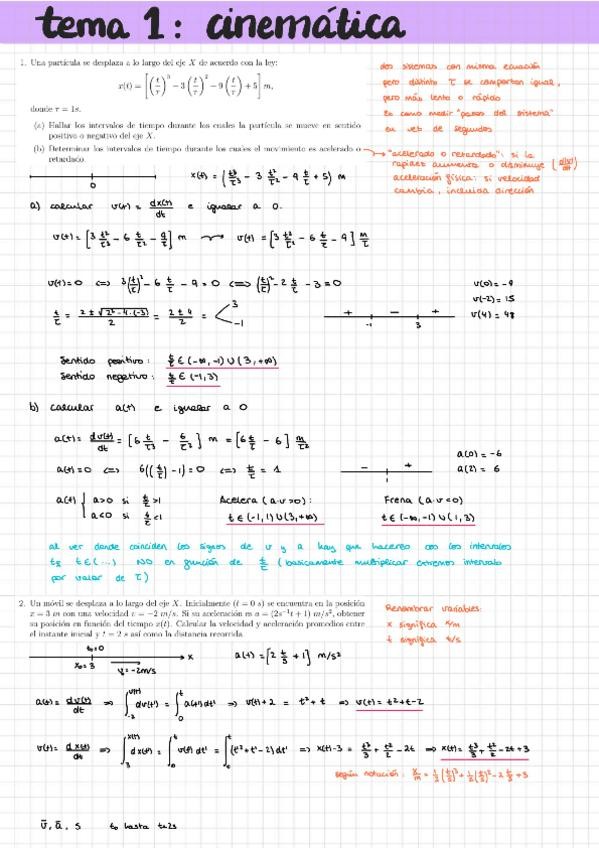 tema 1: cinemática
1. Una partícula se desplaza a lo largo del eje X de acuerdo con la ley:
x(t) = [(t/τ)³ − 3(t/τ)² − 9(t/τ) + 5] m,
donde τ = 1s.
(a) Hallar los intervalos de tiempo durante los cuales la partícula se mueve en sentido
positivo o negativo del eje X.
(b) Determinar los intervalos de tiempo durante los cuales el movimiento es acelerado o
retardado.
dos sistemas con misma ecuación
pero distinto τ se comportan igual,
pero más lento o rápido
Es como medir "pasos del sistema"
en vez de segundos
→ "acelerado o retardado": si la
rapidez aumenta o disminuye (d|v|/dt)
aceleración física: si velocidad
cambia, incluida dirección
0
x(t) = (t³/τ³ − 3 t²/τ² − 9 t/τ + 5) m
a) calcular v(t) = dx(t)/dt e igualar a 0.
v(t) = [3 t²/τ³ − 6 t/τ² − 9/τ] m → v(t) = [3 t²/τ² − 6 t/τ − 9] m/τ
v(t)=0 ⟺ 3(t/τ)² − 6 t/τ − 9 = 0 ⟺ (t/τ)² − 2 t/τ − 3 = 0
v(0) = −9
v(−2) = 15
v(4) = 48
t/τ = 2 ± √(2² − 4·(−3)) / 2 = 2 ± 4 / 2 = 3
−1
+ − +
−1 3
Sentido positivo: t/τ ∈ (−∞, −1) ∪ (3, +∞)
Sentido negativo: t/τ ∈ (−1, 3)
b) calcular a(t) e igualar a 0
a(t) = dv(t)/dt = [6 t/τ³ − 6/τ²] m = [6 t/τ − 6] m/τ²
a(0) = −6
a(2) = 6
a(t)=0 ⟺ 6((t/τ) − 1) = 0 ⟺ t/τ = 1
− +
1
a(t) { a>0 si t/τ >1
a<0 si t/τ <1
Acelera (a·v>0):
t ∈ (−1, 1) ∪ (3, +∞)
Frena (a·v<0)
t ∈ (−∞, −1) ∪ (1, 3)
al ver donde coinciden los signos de v y a hay que hacerlo con los intervalos
t ∈ (...) NO en función de t/τ (basicamente multiplicar extremos intervalo
por valor de τ)
2. Un móvil se desplaza a lo largo del eje X. Inicialmente (t = 0 s) se encuentra en la posición
x = 3 m con una velocidad v = −2 m/s. Si su aceleración es a = (2s⁻¹t + 1) m/s², obtener
su posición en función del tiempo x(t). Calcular la velocidad y aceleración promedios entre
el instante inicial y t = 2 s así como la distancia recorrida.
Renombrar variables:
x significa x/m
t significa t/s
t₀=0
x
x₀=3 v₀=−2m/s
a(t) = [2 t/s + 1] m/s²
a(t) = dv(t)/dt ⟹ ∫₋₂^v(t) dv(t') = ∫₀^t a(t')dt' ⟹ v(t)+2 = t² + t ⟹ v(t) = t²+t−2
v(t) = dx(t)/dt ⟹ ∫₃^x(t) dx(t') = ∫₀^t v(t') dt' = ∫₀^t (t'²+t'−2)dt' ⟹ x(t)−3 = t³/3 + t²/2 − 2t ⟹ x(t) = t³/3 + t²/2 − 2t + 3
según notación: x/m = 1/3 (t/s)³ + 1/2 (t/s)² − 2 t/s + 3
v̄, ā, s t₀ hasta t=2s